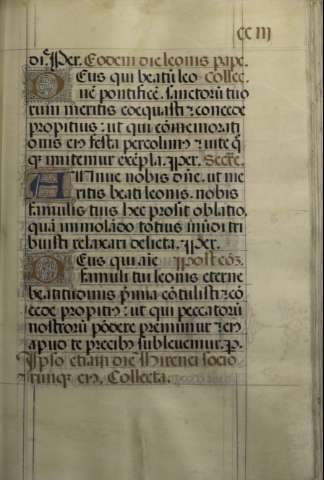 CC III
di. Per. Eodem die leonis pape.
Deus qui beatū leo Collec.
nē pontificē. sanctorū tuo
rum meritis coequasti: concede
propitius: ut qui cōmemorati
onis eiꝰ festa percolimꝰ: uite q̄
qꝫ imitemur exēpla. per. Secre.
Annue nobis dn̄e. ut me
ritis beati leonis. nobis
famulis tuis hec prosit oblatio.
quā imolādo totius mūdi tri
buisti relaxari delicta. per.
Deus qui aīe post cō3.
famuli tui leonis eterne
beatitudinis pͥmia cōtulisti: cō
cede propitiꝰ: ut qui peccatorū
nostrorū pōdere premimur: eiꝰ
apud te precibꝰ subleuemur. p.
Ipso etiam die Hirenei socio
rumqꝫ eiꝰ, Collecta.